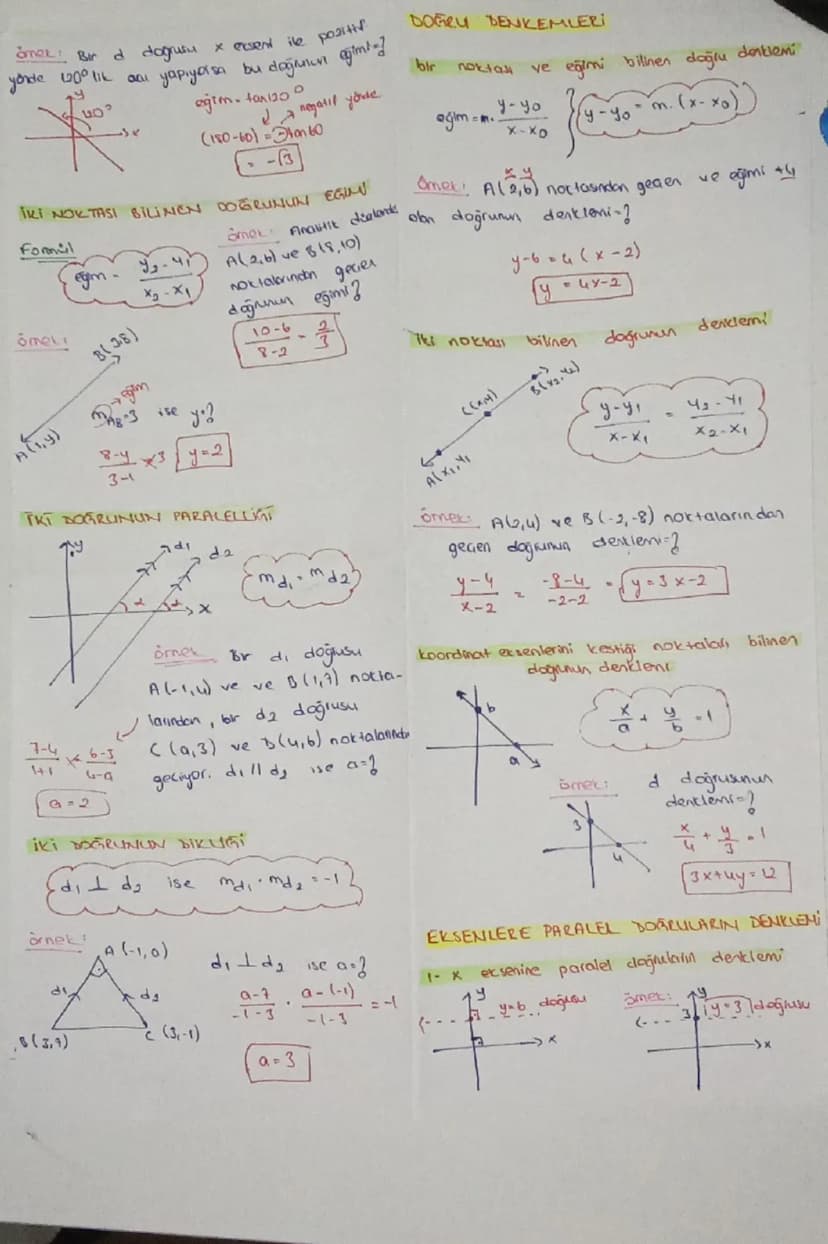 örnek: Bir d doğrusu x ekseni ile pozitif
yönde 120° lik açı yapıyorsa bu doğrunun eğimi=?
y
120°
x
eğim = tan120°
negatif yönde
(180-60) = -tan60
= -√3
İKİ NOKTASI BİLİNEN DOĞRUNUN EĞİMİ
Formül
eğim = y₂-y₁ / x₂-x₁
örnek: Analitik düzlemde
A(2,6) ve B(8,10)
noktalarından geçen
doğrunun eğimi?
10-6 / 8-2 = 2/3
örnek:
B(3,8)
A(1,y)
eğim
m_AB=3 ise y=?
8-y / 3-1 = 3
y=2
İKİ DOĞRUNUN PARALELLİĞİ
y
d1
d2
α
α
x
m_d1 = m_d2
örnek Bir d₁ doğrusu
A(-1,4) ve ve B(1,7) nokta-
larından, bir d2 doğrusu
C(a,3) ve D(4,6) noktalarından
geçiyor. d₁ // d₂ ise a=?
7-4 / 1+1 = 6-3 / 4-a
a=2
İKİ DOĞRUNUN DİKLİĞİ
d₁ ⊥ d₂ ise m_d₁ . m_d₂ = -1
örnek:
A(-1,a)
d₁
d₂
B(3,7)
C(3,-1)
d₁ ⊥ d₂ ise a=?
a-7 / -1-3 . a-(-1) / -1-3 = -1
a=3
DOĞRU DENKEMLERİ
bir noktası ve eğimi bilinen doğru denklemi
eğim=m= y-y₀ / x-x₀
y-y₀ = m.(x-x₀)
x y
örnek: A(2,6) noktasından geçen ve eğimi +4
olan doğrunun denklemi=?
y-6=4(x-2)
y = 4x-2
iki noktası bilinen doğrunun denklemi
B(x₂,y₂)
C(x,y)
A(x₁,y₁)
y-y₁ / x-x₁ = y₂-y₁ / x₂-x₁
örnek: A(2,4) ve B(-2,-8) noktalarından
geçen doğrunun denklemi=?
y-4 / x-2 = -8-4 / -2-2 = y=3x-2
koordinat eksenlerini kestiği noktaları bilinen
doğrunun denklemi
b
a
x/a + y/b = 1
örnek: d doğrusunun
denklemi=?
3
4
x/4 + y/3 = 1
3x+4y=12
EKSENLERE PARALEL DOĞRULARIN DENKLEMİ
1- x eksenine paralel doğruların denklemi
y
y=b doğrusu
x
örnek:
y
3
y=3 doğrusu
x